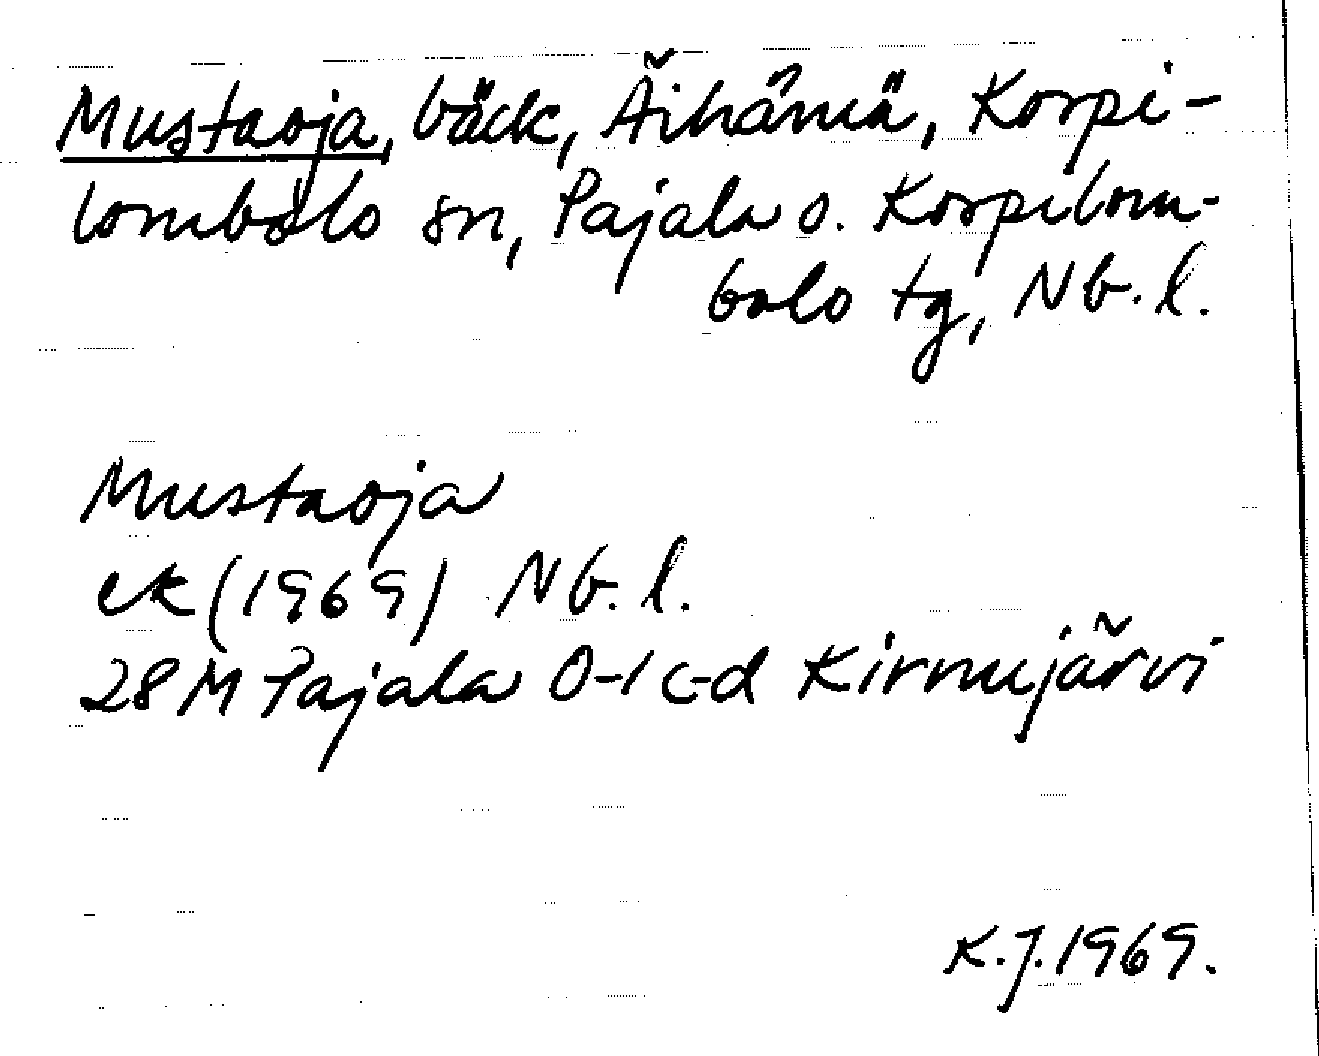 Mustaoja, bäck, Äihämä, Korpi-
lombolo sn, Pajala o. Korpilom-
bolo tg, Nb. l.
Mustaoja
ek (1969) Nb. l.
28 M Pajala 0-1 c-d Kirnujärvi
K.J. 1969.